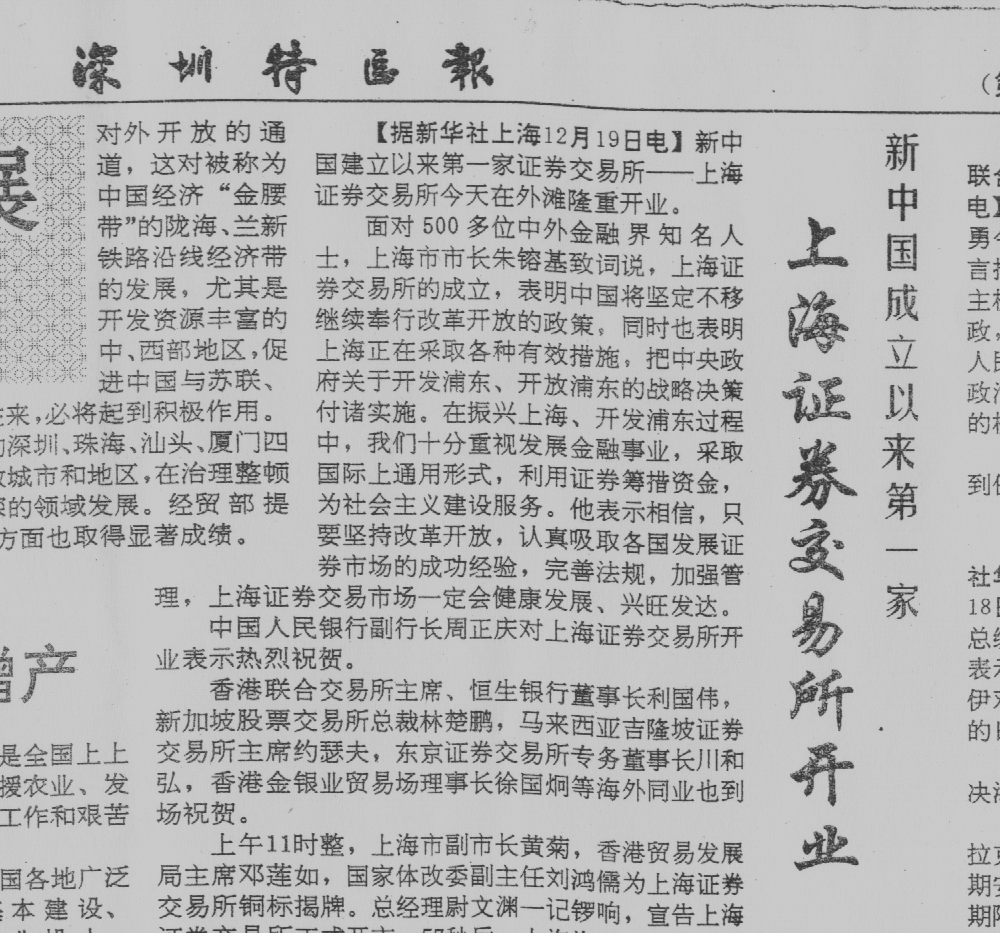 深圳特区報
（第
展
对外开放的通
道，这对被称为
中国经济“金腰
带”的陇海、兰新
铁路沿线经济带
的发展，尤其是
开发资源丰富的
中、西部地区，促
进中国与苏联、
来，必将起到积极作用。
深圳、珠海、汕头、厦门四
城市和地区，在治理整顿
的领域发展。经贸部提
方面也取得显著成绩。
增产
是全国上上
援农业、发
工作和艰苦
国各地广泛
基本建设、
新中国成立以来第一家
上海证券交易所开业
【据新华社上海12月19日电】新中
国建立以来第一家证券交易所——上海
证券交易所今天在外滩隆重开业。
面对500多位中外金融界知名人
士，上海市市长朱镕基致词说，上海证
券交易所的成立，表明中国将坚定不移
继续奉行改革开放的政策。同时也表明
上海正在采取各种有效措施，把中央政
府关于开发浦东、开放浦东的战略决策
付诸实施。在振兴上海、开发浦东过程
中，我们十分重视发展金融事业，采取
国际上通用形式，利用证券筹措资金，
为社会主义建设服务。他表示相信，只
要坚持改革开放，认真吸取各国发展证
券市场的成功经验，完善法规，加强管
理，上海证券交易市场一定会健康发展、兴旺发达。
中国人民银行副行长周正庆对上海证券交易所开
业表示热烈祝贺。
香港联合交易所主席、恒生银行董事长利国伟，
新加坡股票交易所总裁林楚鹏，马来西亚吉隆坡证券
交易所主席约瑟夫，东京证券交易所专务董事长川和
弘，香港金银业贸易场理事长徐国炯等海外同业也到
场祝贺。
上午11时整，上海市副市长黄菊，香港贸易发展
局主席邓莲如，国家体改委副主任刘鸿儒为上海证券
交易所铜标揭牌。总经理尉文渊一记锣响，宣告上海
联合
电】
勇今
言指
主权
政，
人民
政治
的权
到使
社华
18日
总统
表示
伊对
的日
决済
拉克
期安
期限